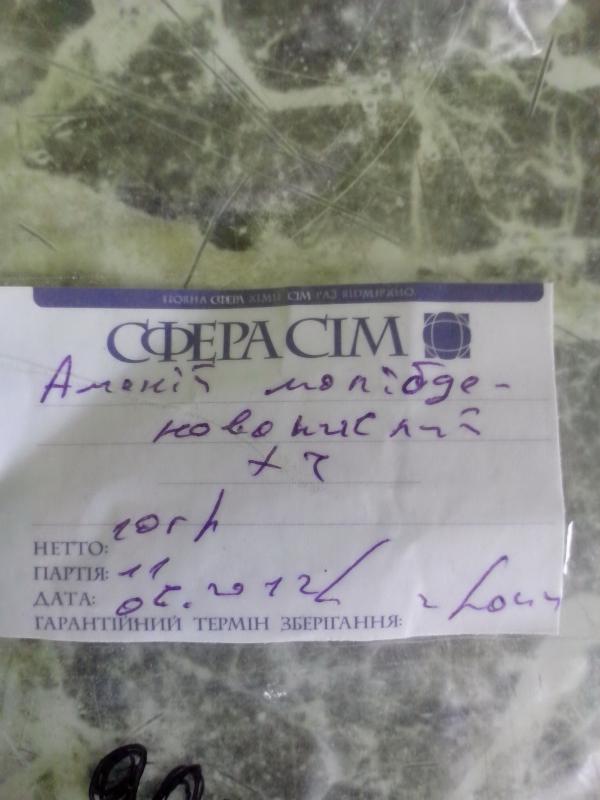 ПОВНА СФЕРА ХІМІЇ СІМ РАЗ ВІДМІРЯНО
СФЕРА СІМ
Амоній молібде-
новокислий
хч
НЕТТО: 10гр
ПАРТІЯ: 11
ДАТА: 2012
ГАРАНТІЙНИЙ ТЕРМІН ЗБЕРІГАННЯ: